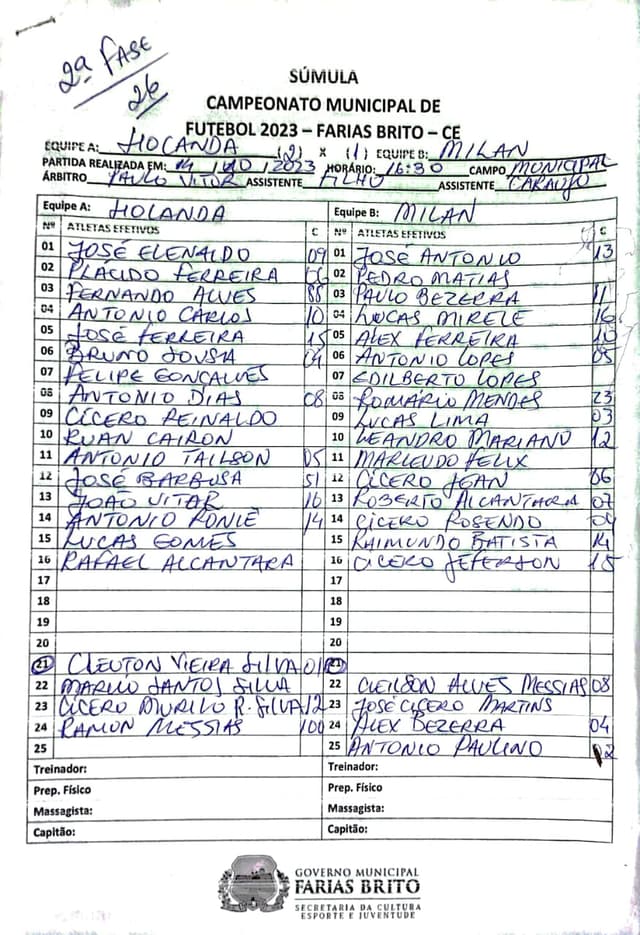 2ª FASE
26
SÚMULA
CAMPEONATO MUNICIPAL DE
FUTEBOL 2023 – FARIAS BRITO – CE
EQUIPE A: HOCANDA (2) X (1) EQUIPE B: MILAN
PARTIDA REALIZADA EM: 14/10/2023 HORÁRIO: 16:30 CAMPO MUNICIPAL
ÁRBITRO PAULO VITOR ASSISTENTE FILHO ASSISTENTE CARAUJO
Equipe A: HOLANDA Equipe B: MILAN
Nº ATLETAS EFETIVOS C Nº ATLETAS EFETIVOS C
01 JOSÉ ELENALDO 09 01 JOSÉ ANTONIO 13
02 PLACIDO FERREIRA 02 PEDRO MATIAS
03 FERNANDO ALVES 88 03 PAULO BEZERRA 11
04 ANTONIO CARLOS 10 04 LUCAS MIRELE 16
05 JOSÉ FERREIRA 15 05 ALEX FERREIRA 10
06 BRUNO SOUSA 04 06 ANTONIO LOPES 05
07 FELIPE GONÇALVES 07 EDILBERTO LOPES
08 ANTONIO DIAS 08 08 ROMÁRIO MENDES 23
09 CÍCERO REINALDO 09 LUCAS LIMA 03
10 RUAN CAIRON 10 LEANDRO MARIANO 12
11 ANTONIO TAILSON 05 11 MARLEUDO FELIX
12 JOSÉ BARBOSA 51 12 CÍCERO JEAN 06
13 JOÃO VITAR 16 13 ROBERTO ALCANTARA 07
14 ANTONIO RONIÊ 14 14 CÍCERO ROSENDO 09
15 LUCAS GOMES 15 RAIMUNDO BATISTA 14
16 RAFAEL ALCANTARA 16 CÍCERO JEFERSON 15
17 17
18 18
19 19
20 20
21 CLEUTON VIEIRA SILVA 01 21
22 MARLIO SANTOS SILVA 22 CLEILSON ALVES MESSIAS 08
23 CÍCERO MURILO R. SILVA 12 23 JOSÉ CÍCERO MARTINS
24 RAMON MESSIAS 100 24 ALEX BEZERRA 04
25 25 ANTONIO PAULINO 02
Treinador: Treinador:
Prep. Físico Prep. Físico
Massagista: Massagista:
Capitão: Capitão:
GOVERNO MUNICIPAL
FARIAS BRITO
SECRETARIA DA CULTURA
ESPORTE E JUVENTUDE